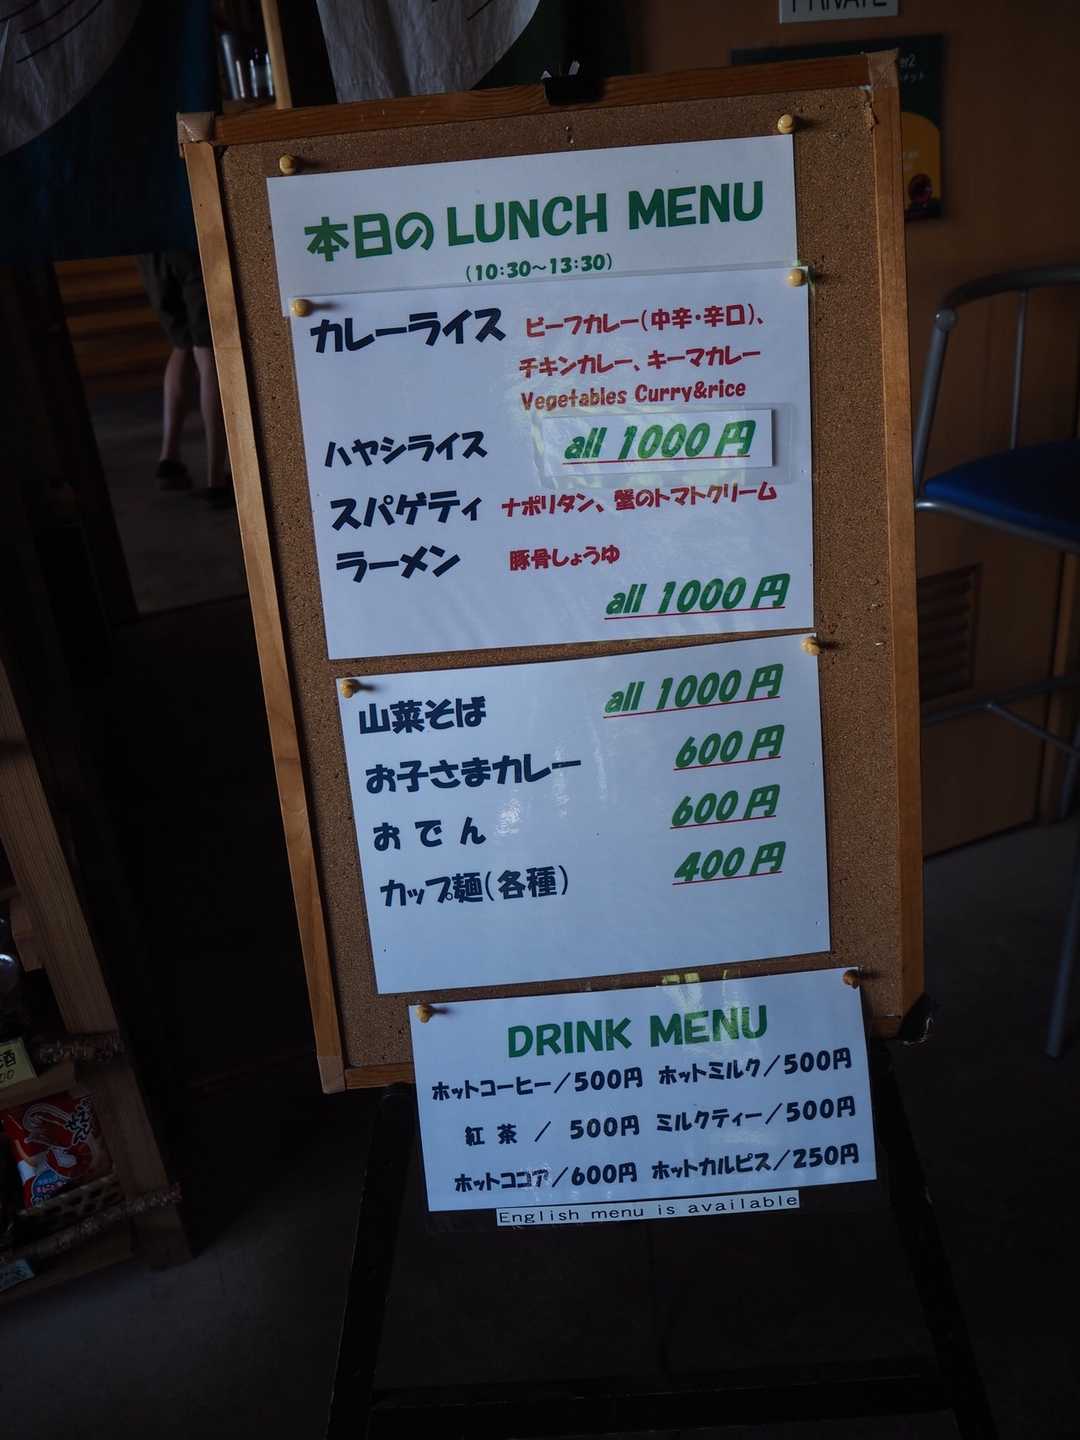 PRIVATE
本日のLUNCH MENU
(10:30～13:30)
カレーライス ビーフカレー(中辛・辛口)、
チキンカレー、キーマカレー
Vegetables Curry&rice
ハヤシライス all 1000円
スパゲティ ナポリタン、蟹のトマトクリーム
ラーメン 豚骨しょうゆ
all 1000円
山菜そば all 1000円
お子さまカレー 600円
おでん 600円
カップ麺(各種) 400円
DRINK MENU
ホットコーヒー/500円 ホットミルク/500円
紅茶 / 500円 ミルクティー/500円
ホットココア/600円 ホットカルピス/250円
English menu is available